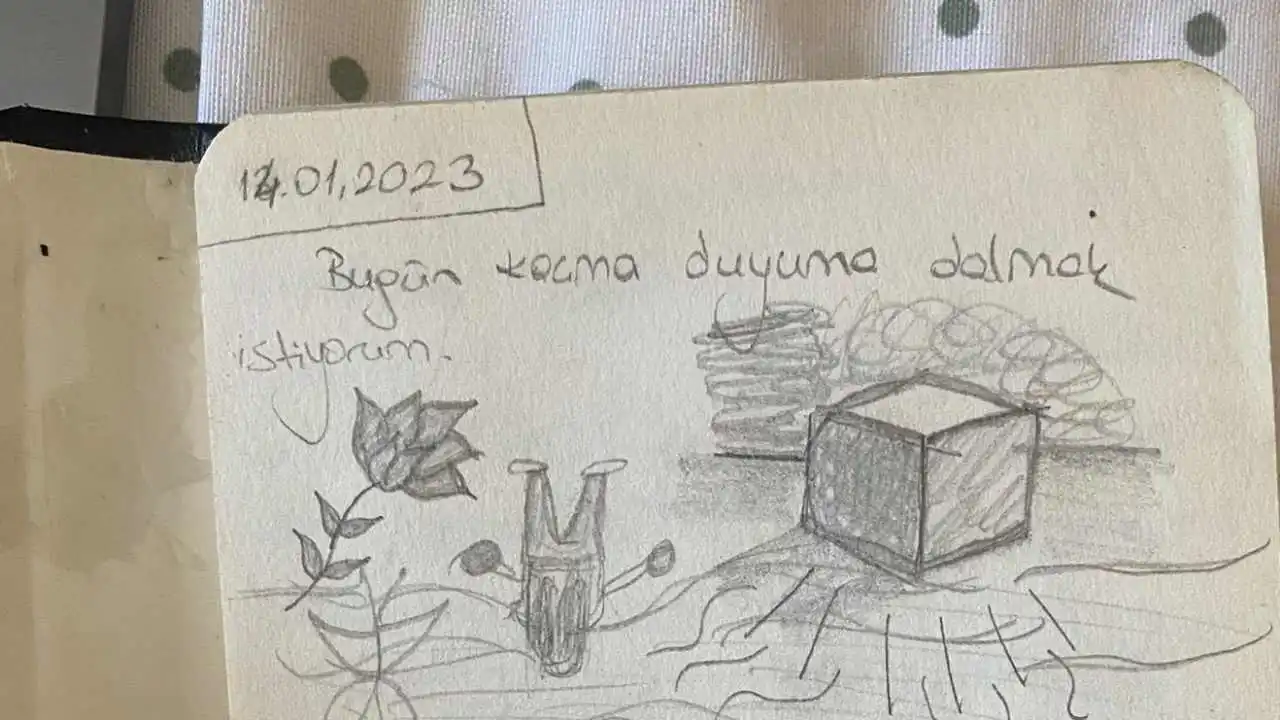 14.01.2023
Bugün kaçma duyuma dalmak
istiyorum.